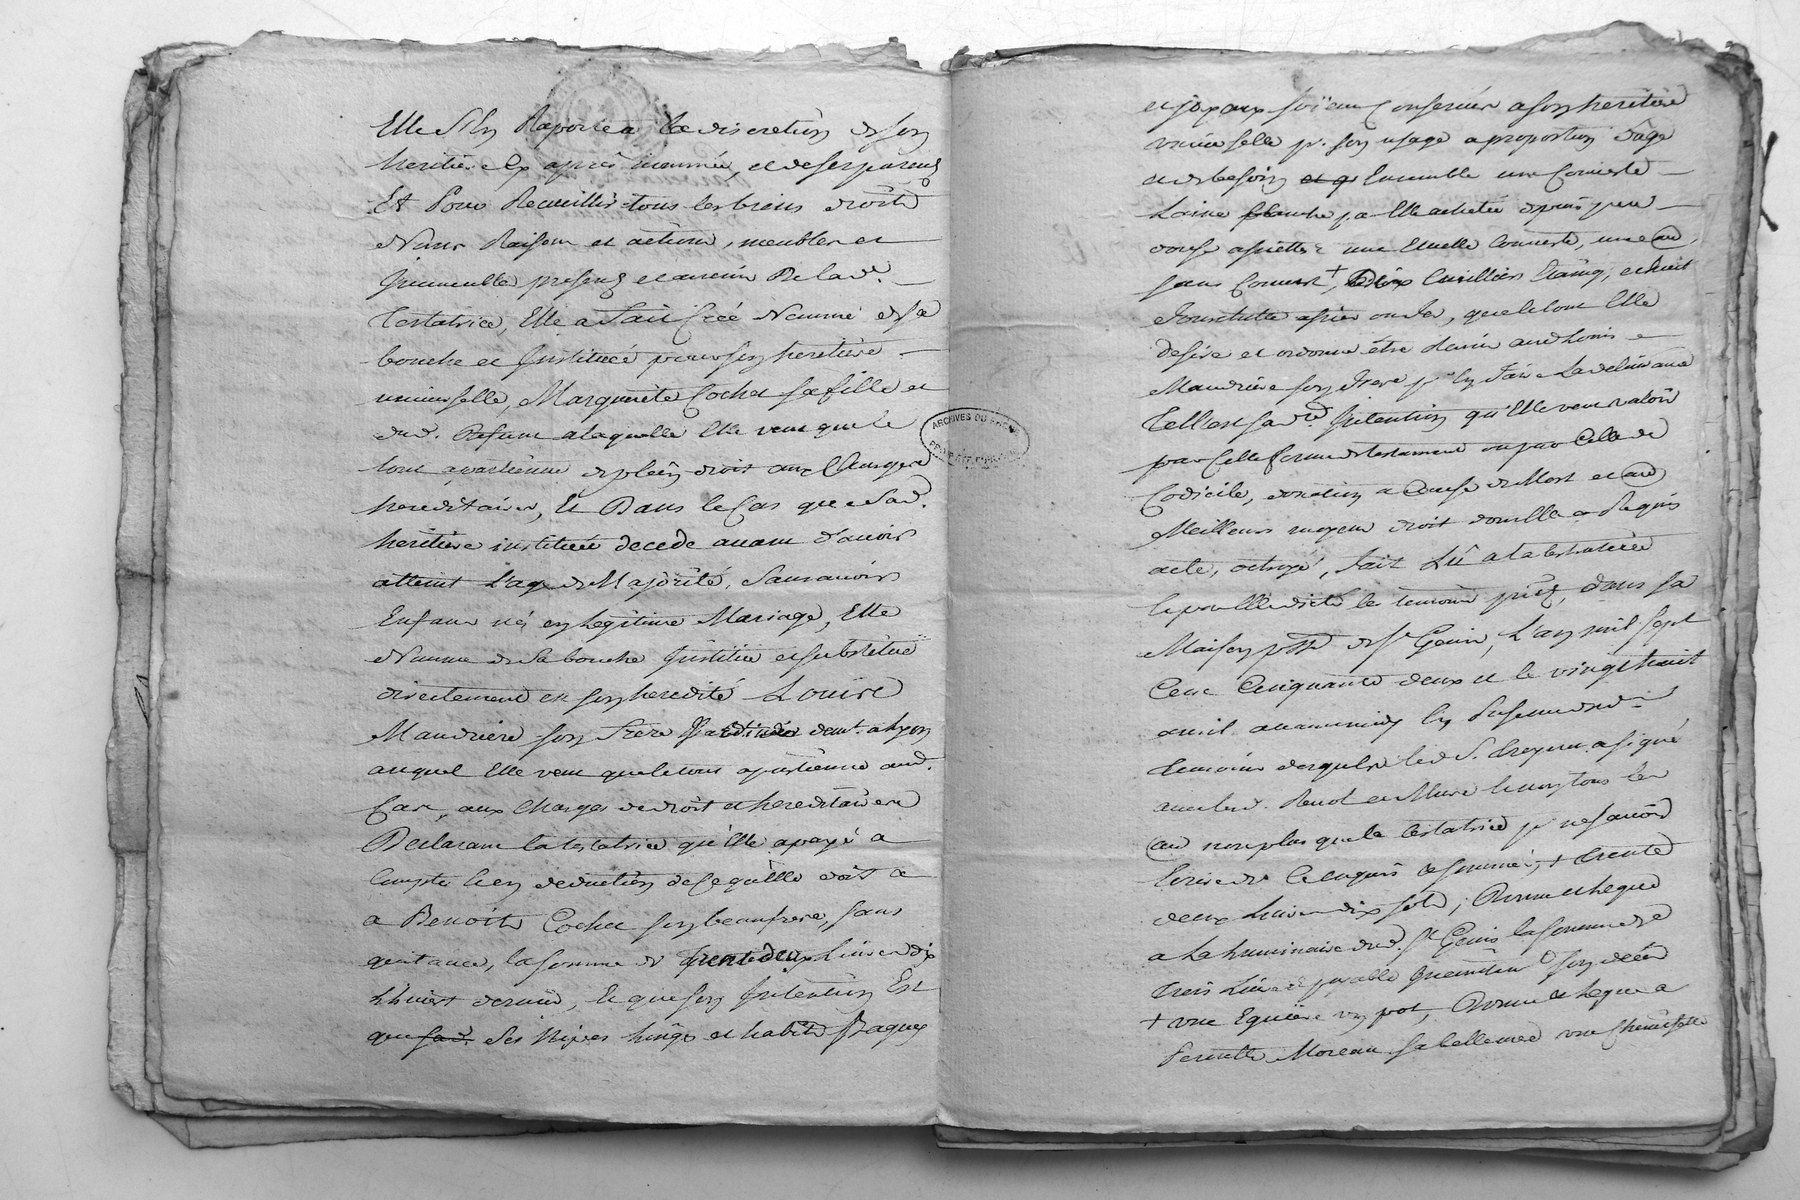 Elle s'En Raporte a la discretion de son
heritiere cy après nommée, et de ses parens
Et Pour Recueillir tous les biens droits
Noms Raisons et actions, meubles et
Immeubles presens et avenir De lad.
Testatrice, Elle a fait Créé Nommé de sa
bouche et Institué pour son heretiere
universelle, Marguerite Cochet sa fille et
dud. Defunt a laquelle Elle veut que le
tout apartienne de plein droit aux Charges
hereditaires, Et Dans le Cas que Sad.
heritiere instituée decede avant d'avoir
atteint L'age de Majorité, Sans avoir
Enfans nés en Legitime Mariage, Elle
Nomme de Sa bouche Institue et substitue
directement en son heredité Louis
Maudrière son frere Jardinier demt. a Lyon
auquel Elle veut que le tout apartienne aud.
Cas, aux Charges de droit et hereditaires
Declarant la testatrice qu'Elle a payé a
Compte et en deduction de ce qu'elle doit a
a Benoit Cochet son beaufrere, sans
quitance, la somme de trente deux Livres dix
huit deniers, Et que son Intention Est
que sad. Ses Nipes linge et habits Bagues
et joyaux soient Conservés a son heritiere
universelle pr. son usage a proportion d'age
et de besoin et q Ensemble une Couverte
Laine blanche qu'Elle a achetée depuis peu
douse assiettes une Ecuelle Couverte, une au
sans Couvert + deux Cuilliers Etaing, et huit
fourchettes assier ou fer, que le tout Elle
desire et ordonne étre Remis aud Louis
Maudrière son frere pr. En faire La delivrance
Telle est sad. Intention qu'Elle veut valoir
par Cette forme de testament ou par Celle de
Codicile, donation a Cause de Mort et au
Meilleurs moyens droit
acte, octroyé, fait Lû a la testatrice
les temoins dans sa
Maison de St. Genis, L'an mil sept
Cent Cinquante deux et le vingt huit
avril avant midy En Presence desd.
temoins desquels led S. a signé
avec led. tous les
au non plus que la testatrice pr. ne savoir
Ecrire de Ce Enquis et sommés, + trente
deux Livres dix sols, Donne et Legue
a La Luminaire dud. St. Genis la somme de
trois Livres payable son decés
+ une Equiere un pot, Donne et Legue a
Moreau sa bellemere une
ARCHIVES DU RHONE